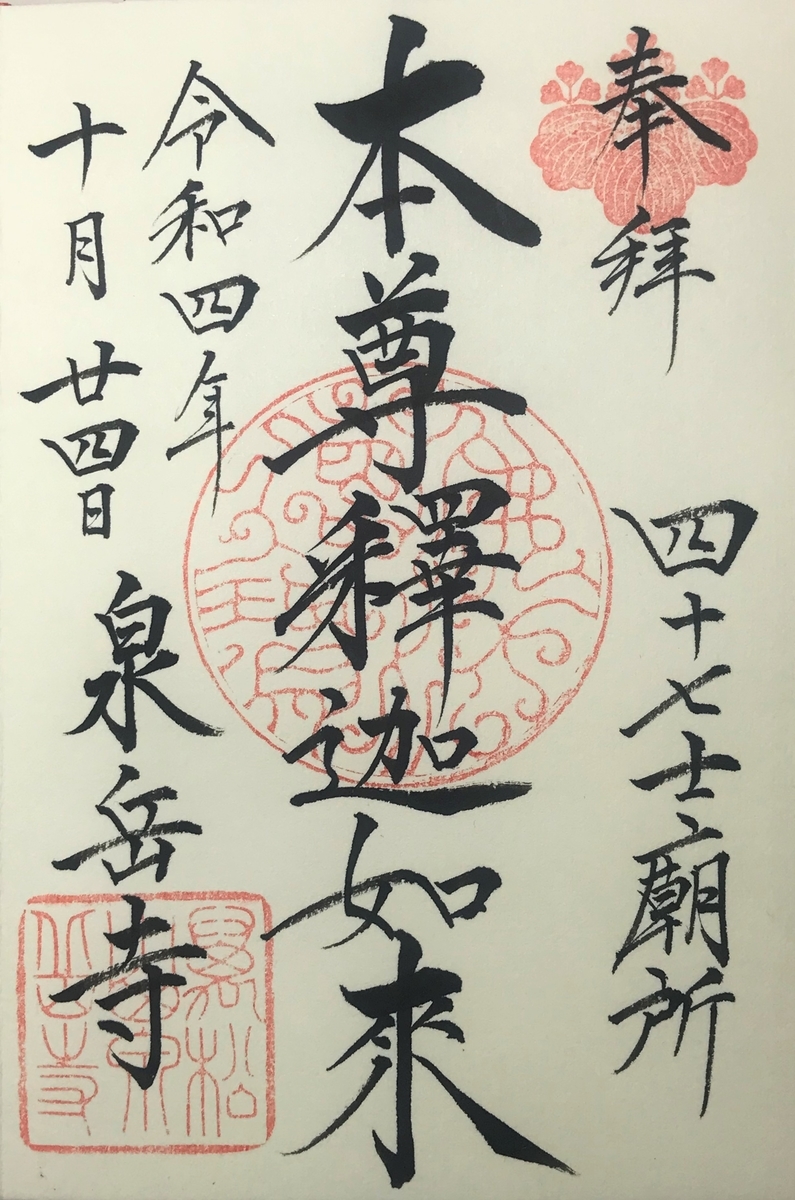 奉拝
四十七士廟所
本尊釋迦如来
令和四年
十月廿四日
泉岳寺